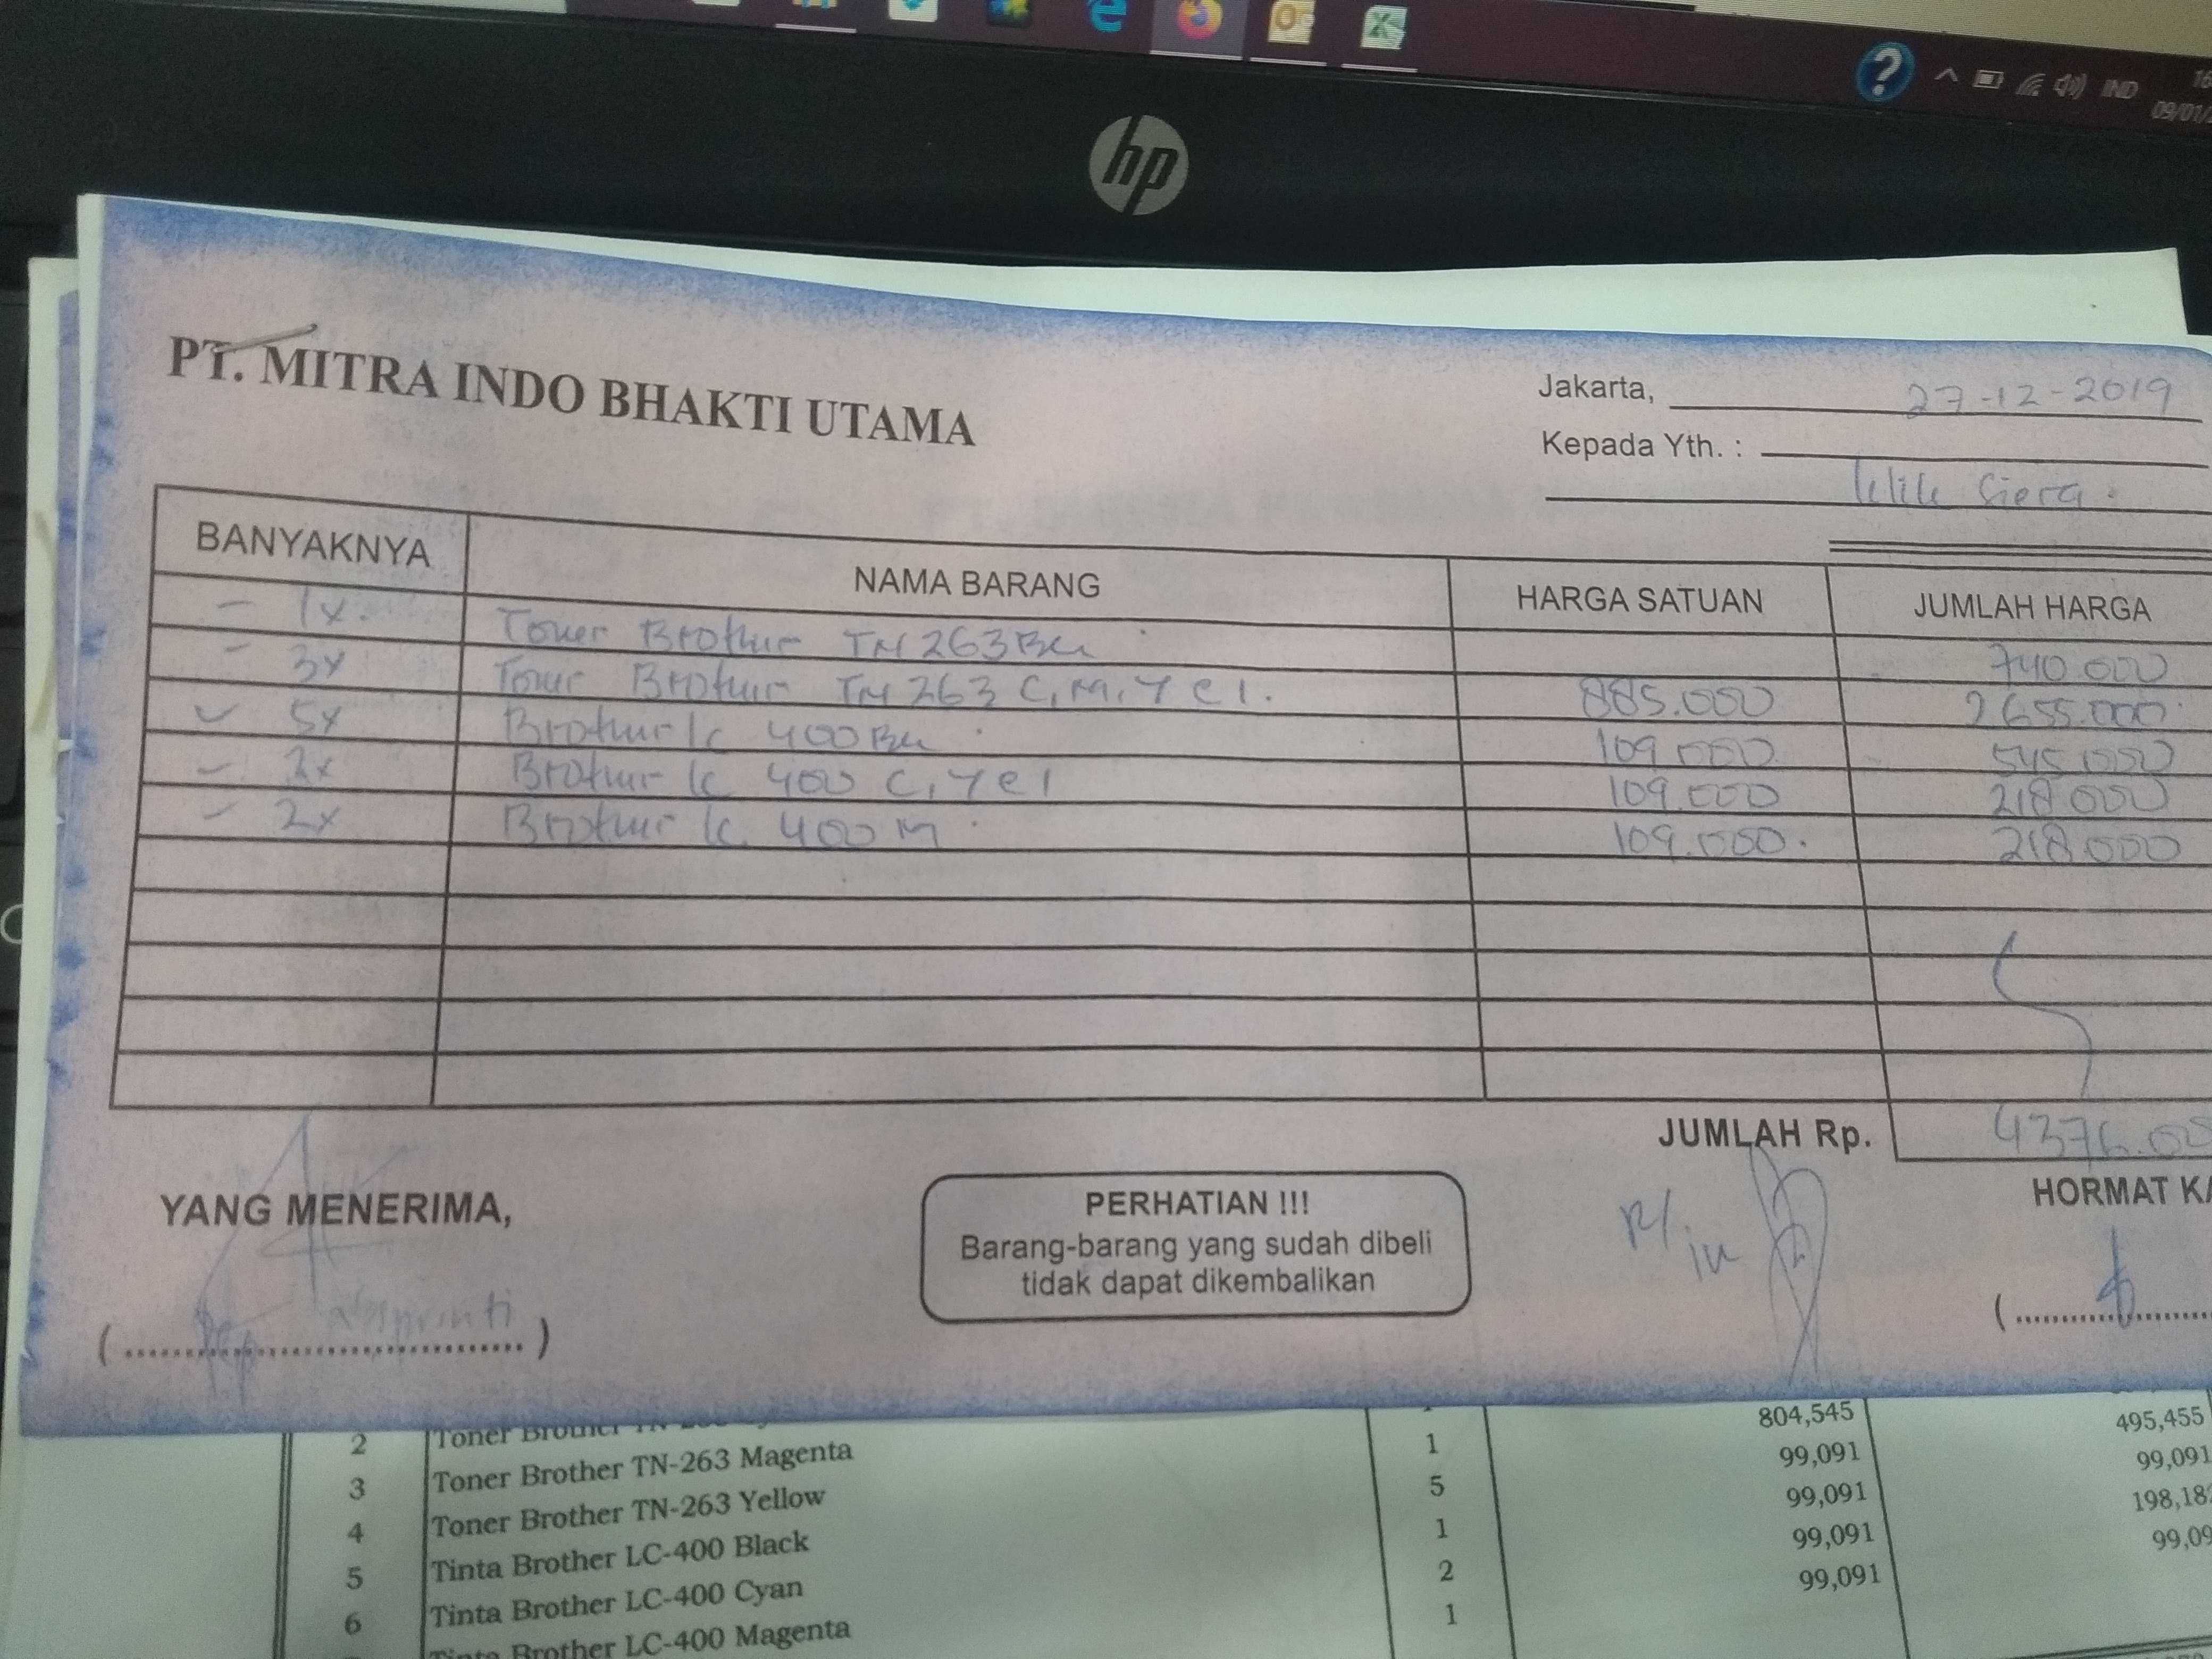 IND
16
09/01/
hp
PT. MITRA INDO BHAKTI UTAMA
Jakarta, 27-12-2019
Kepada Yth. :
BANYAKNYA NAMA BARANG HARGA SATUAN JUMLAH HARGA
1x. Toner Brother TN 263 BK 740.000
3x Toner Brother TN 263 C, M, Yel. 885.000 2655.000
5x Brother lc 400 BK 109.000 545.000
2x Brother lc 400 C, Yel 109.000 218.000
2x Brother lc. 400 M 109.000. 218.000
JUMLAH Rp. 4376.00
YANG MENERIMA,
PERHATIAN !!!
Barang-barang yang sudah dibeli
tidak dapat dikembalikan
HORMAT KA
2 Toner Brother 804,545 495,455
3 Toner Brother TN-263 Magenta 1 99,091 99,091
4 Toner Brother TN-263 Yellow 5 99,091 198,18
5 Tinta Brother LC-400 Black 1 99,091 99,09
6 Tinta Brother LC-400 Cyan 2 99,091
Tinta Brother LC-400 Magenta 1